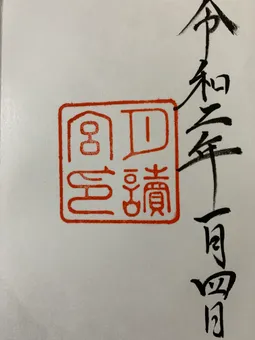 令和二年一月四日
月讀
宮印